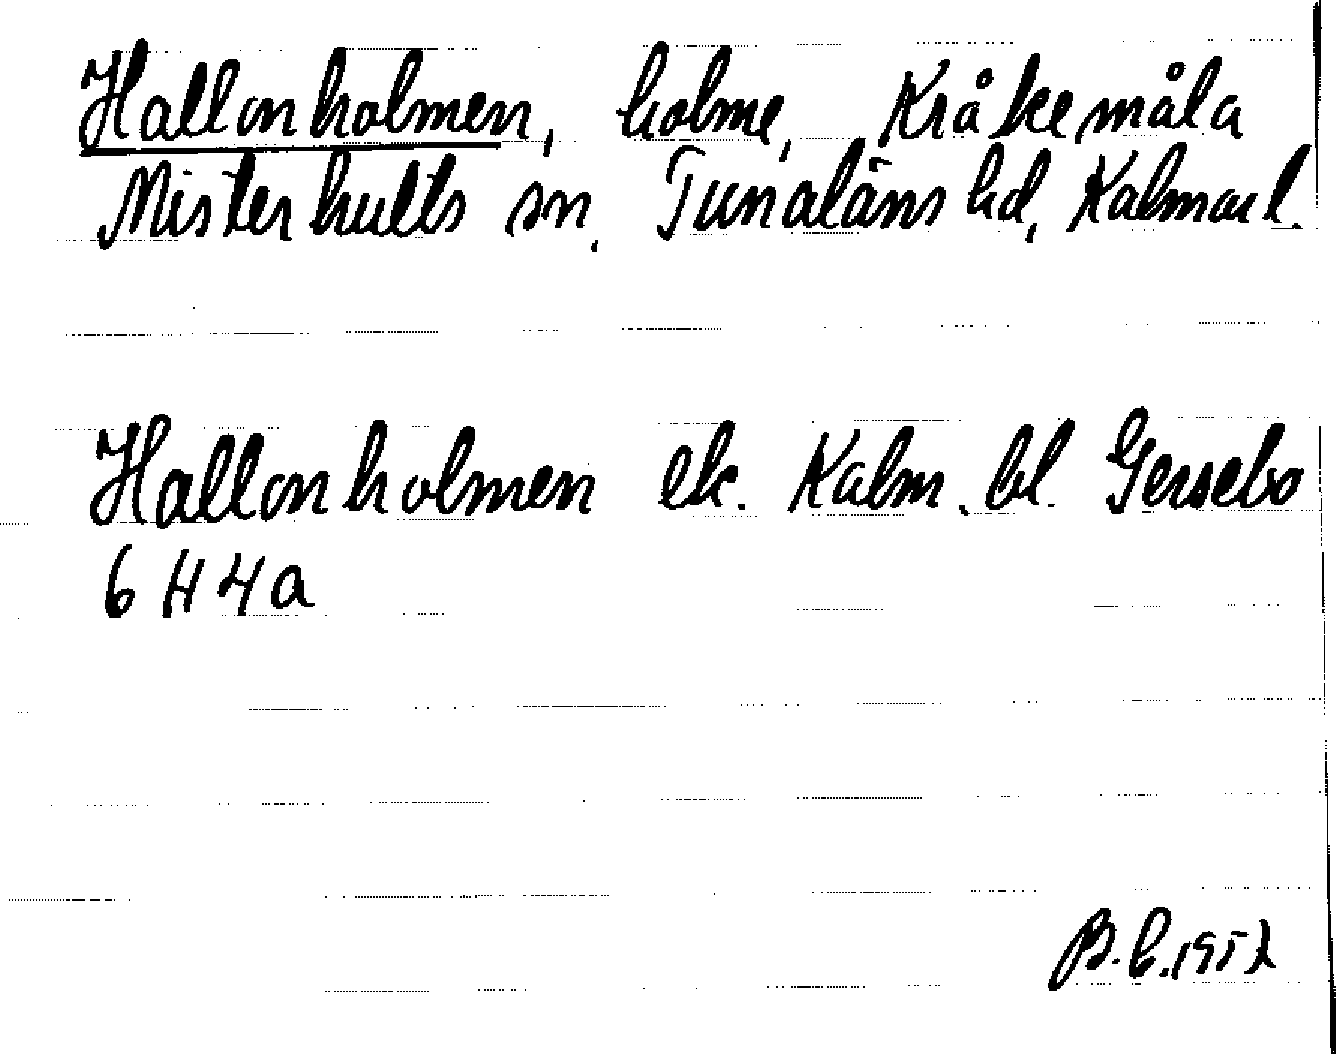 Hallonholmen, holme, Kråkemåla
Misterhults sn, Tunaläns hd, Kalmar l.
Hallonholmen ek. Kalm. bl. Gersebo
6 H 4 a
B.E. 1952